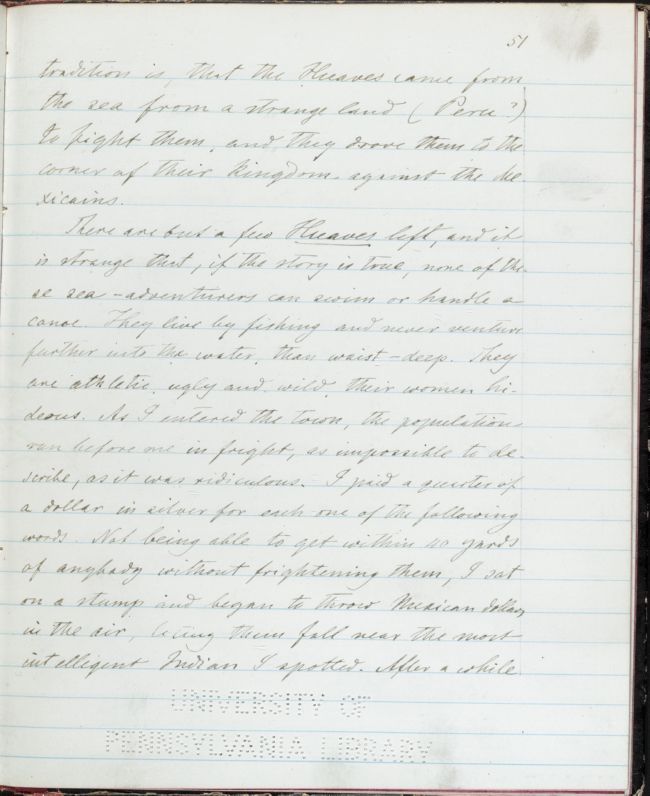 51
tradition is, that the Hueaves came from
the sea from a strange land (Peru?)
to fight them, and they drove them to the
corner of their kingdom against the Me
xicains.
There are but a few Hueaves left, and it
is strange that, if the story is true, none of the
se sea-adventurers can swim or handle a
canoe. They live by fishing and never venture
further into the water, than waist-deep. They
are athletic, ugly and wild, their women hi-
deous. As I entered the town, the population
ran before me in fright, as impossible to de-
scribe, as it was ridiculous. I paid a quarter of
a dollar in silver for each one of the following
words. Not being able to get within 40 yards
of anybody without frightening them, I sat
on a stump and began to throw Mexican dollars
in the air, letting them fall near the most
intelligent Indian I spotted. After a while
UNIVERSITY OF
PENNSYLVANIA LIBRARY